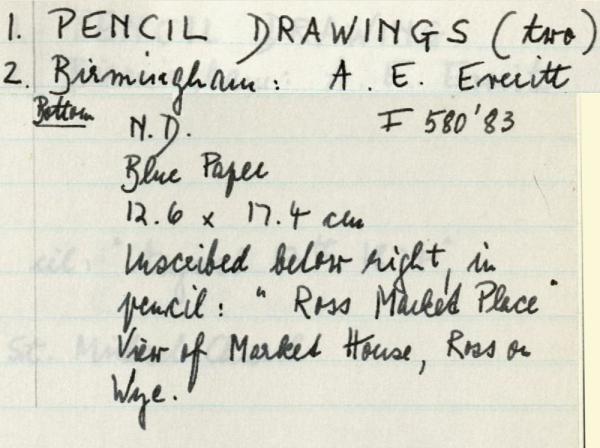 1. PENCIL DRAWINGS (two)
2. Birmingham: A. E. Everitt
Bottom
N.D. F 580'83
Blue Paper
12.6 x 17.4 cm
Inscribed below right, in
pencil: " Ross Market Place "
View of Market House, Ross on
Wye.